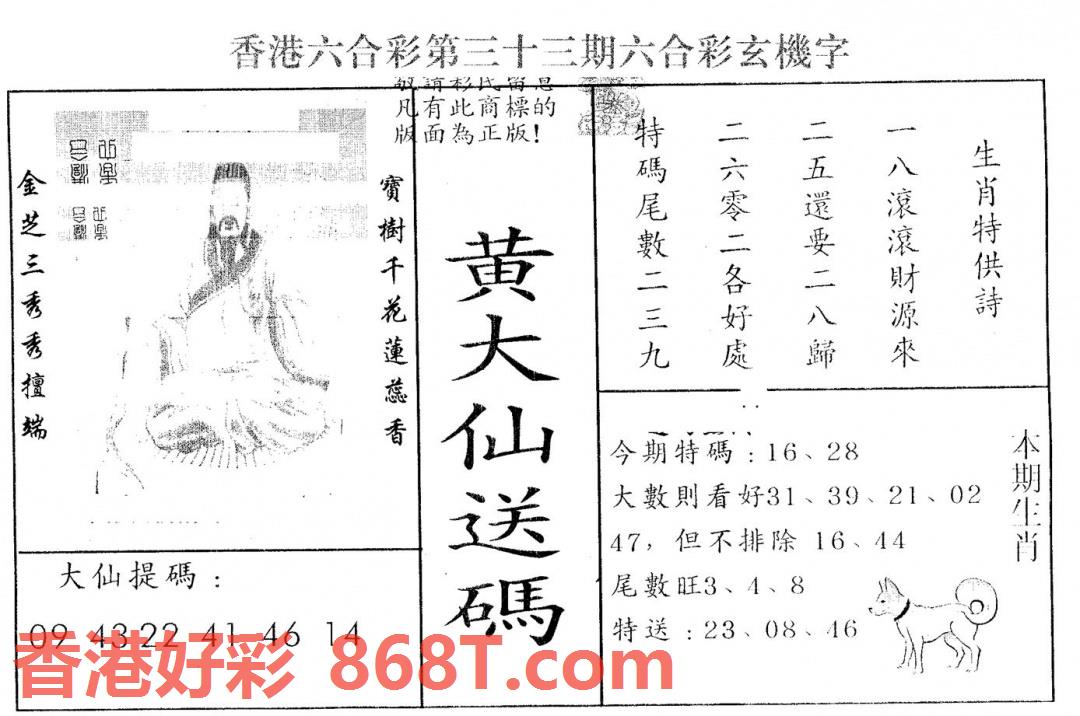 香港六合彩第三十三期六合彩玄機字
敬請彩民留意
凡有此商標的
版面為正版！
寶樹千花蓮蕊香
金芝三秀秀擅端
黄大仙送碼
生肖特供詩
一八滾滾財源來
二五還要二八歸
二六零二各好處
特碼尾數二三九
大仙提碼：
09 43 22 41 46 14
本期生肖
今期特碼：16、28
大數則看好31、39、21、02
47，但不排除 16、44
尾數旺3、4、8
特送：23、08、46
香港好彩 868T.com